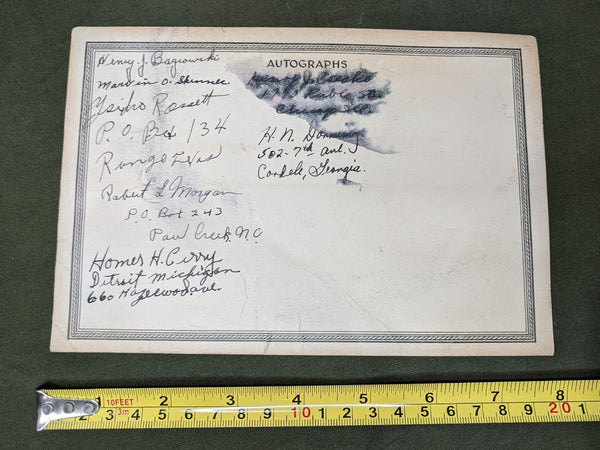 AUTOGRAPHS
Henry J. Bagrowski
Marvin O. Skinner
Rossett
P.O. Box 134
Runge Texas
Robert L Morgan
P.O. Box 243
Paw Creek, N.C.
Homer H. Curry
Detroit Michigan
660 Hazelwood ave.
Henry J.
Chicago Ill.
H. N.
502-7th Ave.
Cordele, Georgia.
1 2 3 4 5 6 7 8
10FEET
3m
2 3 4 5 6 7 8 9 10 1 2 3 4 5 6 7 8 9 20 1